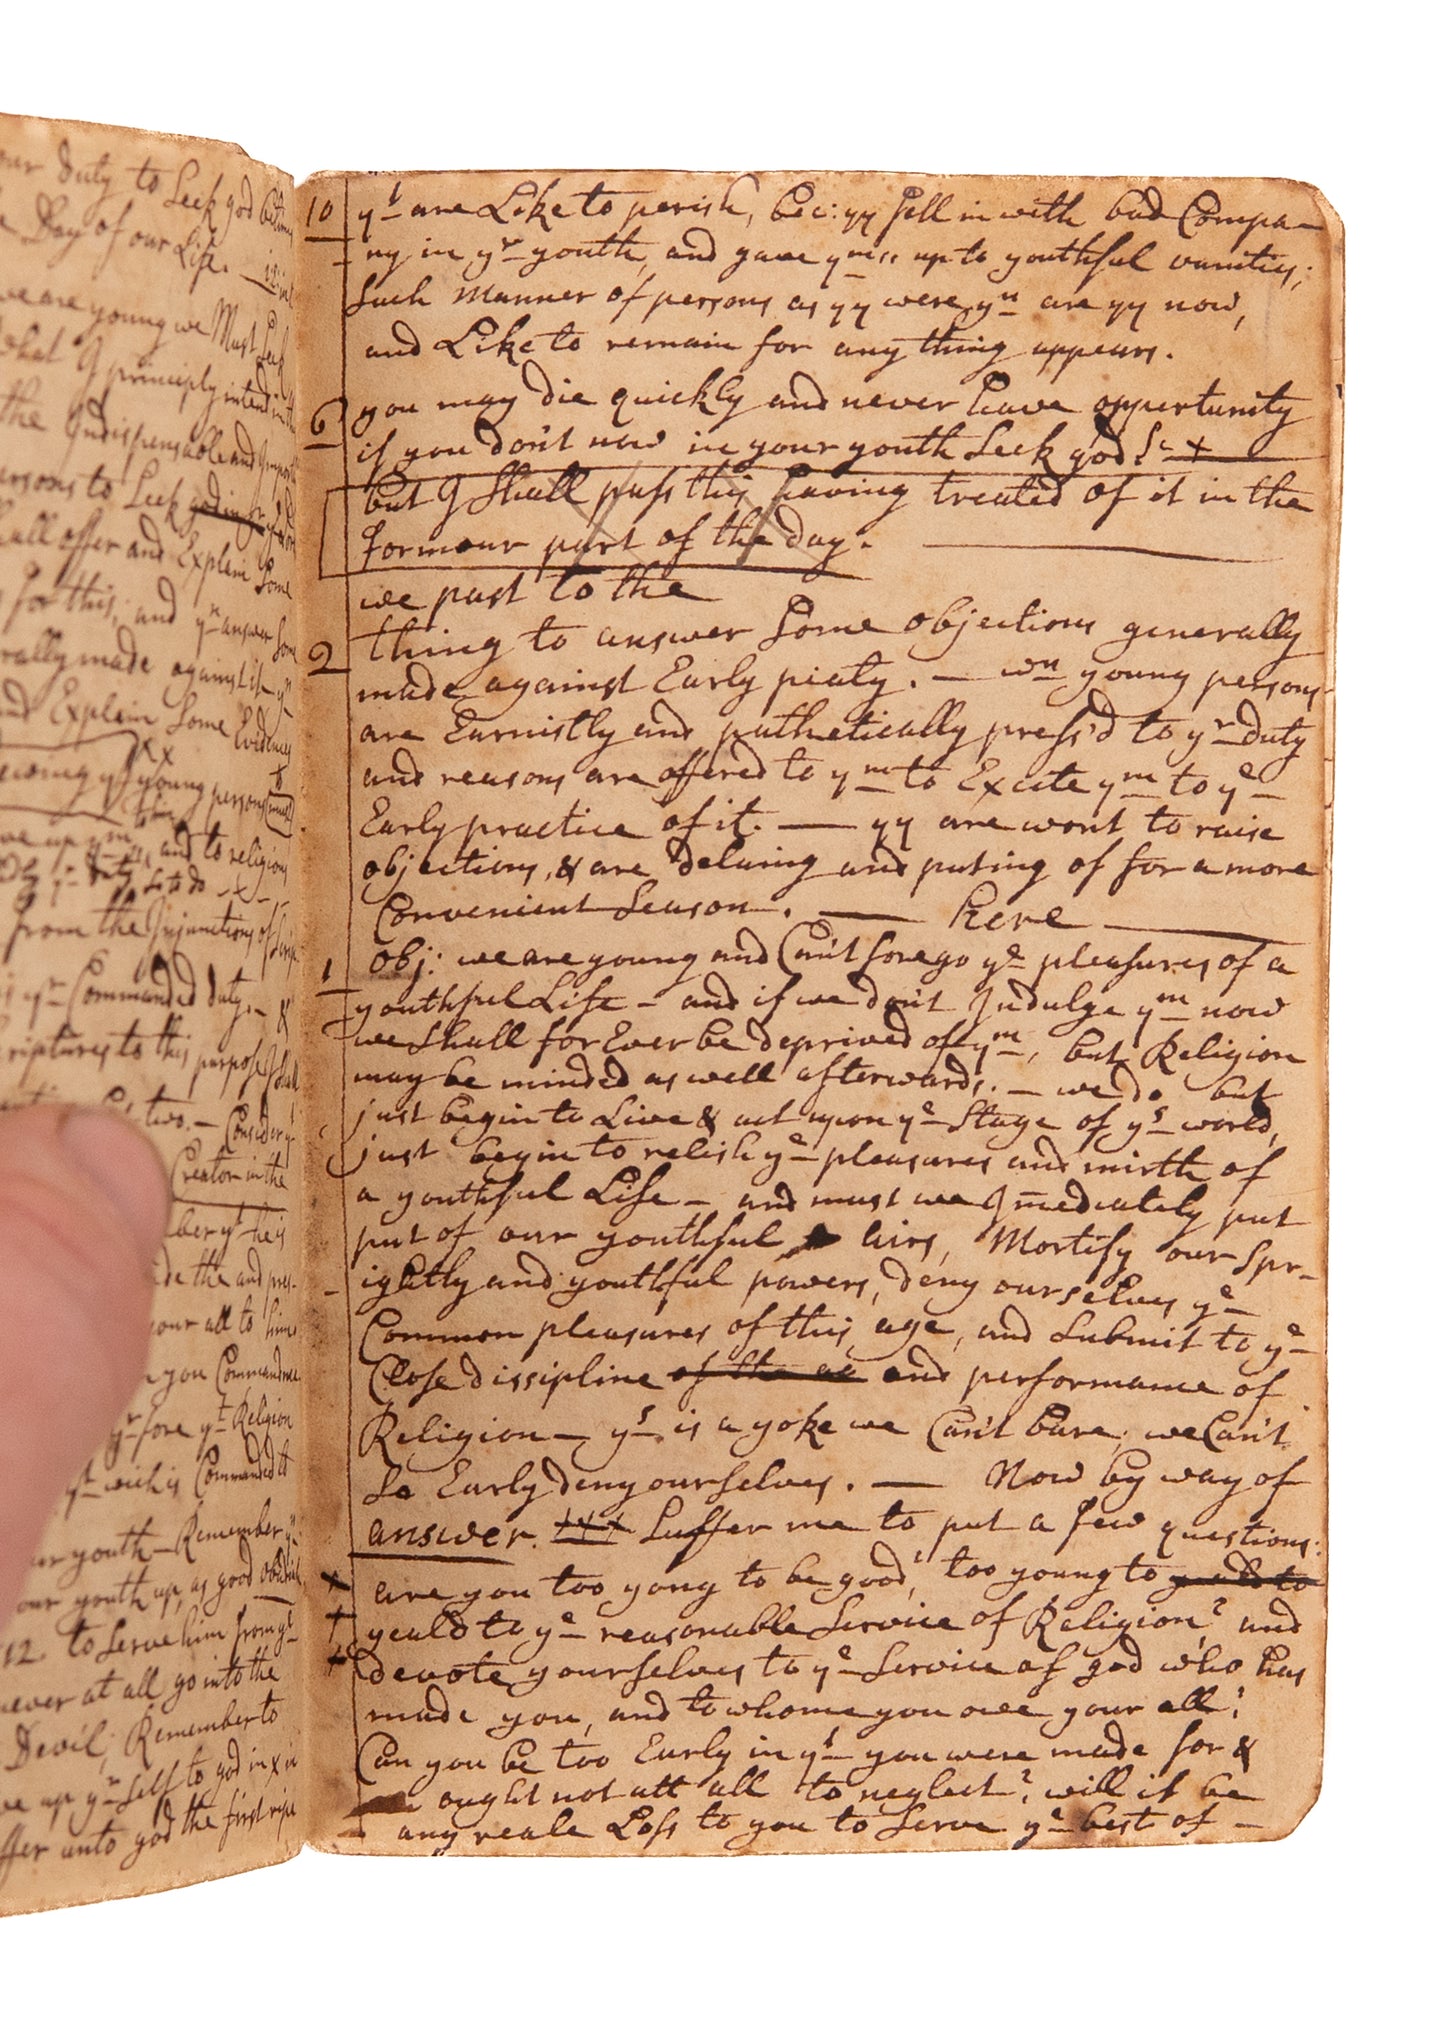 our duty to Seek god
Day of our Life.
we are young we Must Seek
what I principly intend in
the Indispensable and
persons to Seek god in
shall offer and Explain Some
for this; and yn answer Some
rally made against it
and Explain Some Evidences
young persons must
and to religion
from the Injunctions of
yr Commanded duty, - &
scriptures to this purpose I shall
two. - Consider
Creator in the
yt he is
the and pres-
your all to him
you Commanded
yrfore yt Religion
yt which is Commanded
our youth - Remember
our youth up, as good
12 to Serve him from
never at all go into the
Devil; Remember to
give up yr Self to god in x
offer unto god the first ripe
10 yt are Like to perish, bec: yy fell in with bad Compa-
ny in yr youth, and gave yms: up to youthful vanities;
Such manner of persons as yy were yn are yy now,
and Like to remain for any thing appears.
6 you may die quickly and never have oppertunity
if you don't now in your youth Seek god &c +
but I Shall pass this having treated of it in the
formour part of the day.
we past to the
2 thing to answer Some objections generally
made against Early piaty. - wn young persons
are Earnistly and pathetically press'd to yr duty
and reasons are offered to ym to Excite ym to ye
Early practice of it. - yy are wont to raise
objections, & are delaing and puting of for a more
Convenient Season. - here
1 obj: we are young and Can't forego ye pleasures of a
youthful Life - and if we don't Indulge ym now
we Shall for Ever be deprived of ym, but Religion
may be minded as well afterwards. - we do but
just begin to Live & act upon ye Stage of ys world,
just begin to relish ye pleasures and mirth of
a youthful Life - and must we Imediately put
put of our youthful airs, Mortify our Spr-
ightly and youthful powers, deny ourselves ye
Common pleasures of this age, and Submit to ye
Close dissipline of the ae and performance of
Religion - ys is a yoke we Can't bare, we Can't
So Early deny ourselves. - Now by way of
answer. +++ Suffer me to put a few questions:
+ are you too yong to be good, too young to
+ yeald to ye reasonable Service of Religion? and
+ devote yourselves to ye Service of god who has
made you, and to whome you owe your all?
Can you be too Early in yt you were made for &
ought not att all to neglect? will it be
any reale Loss to you to Serve ye best of -